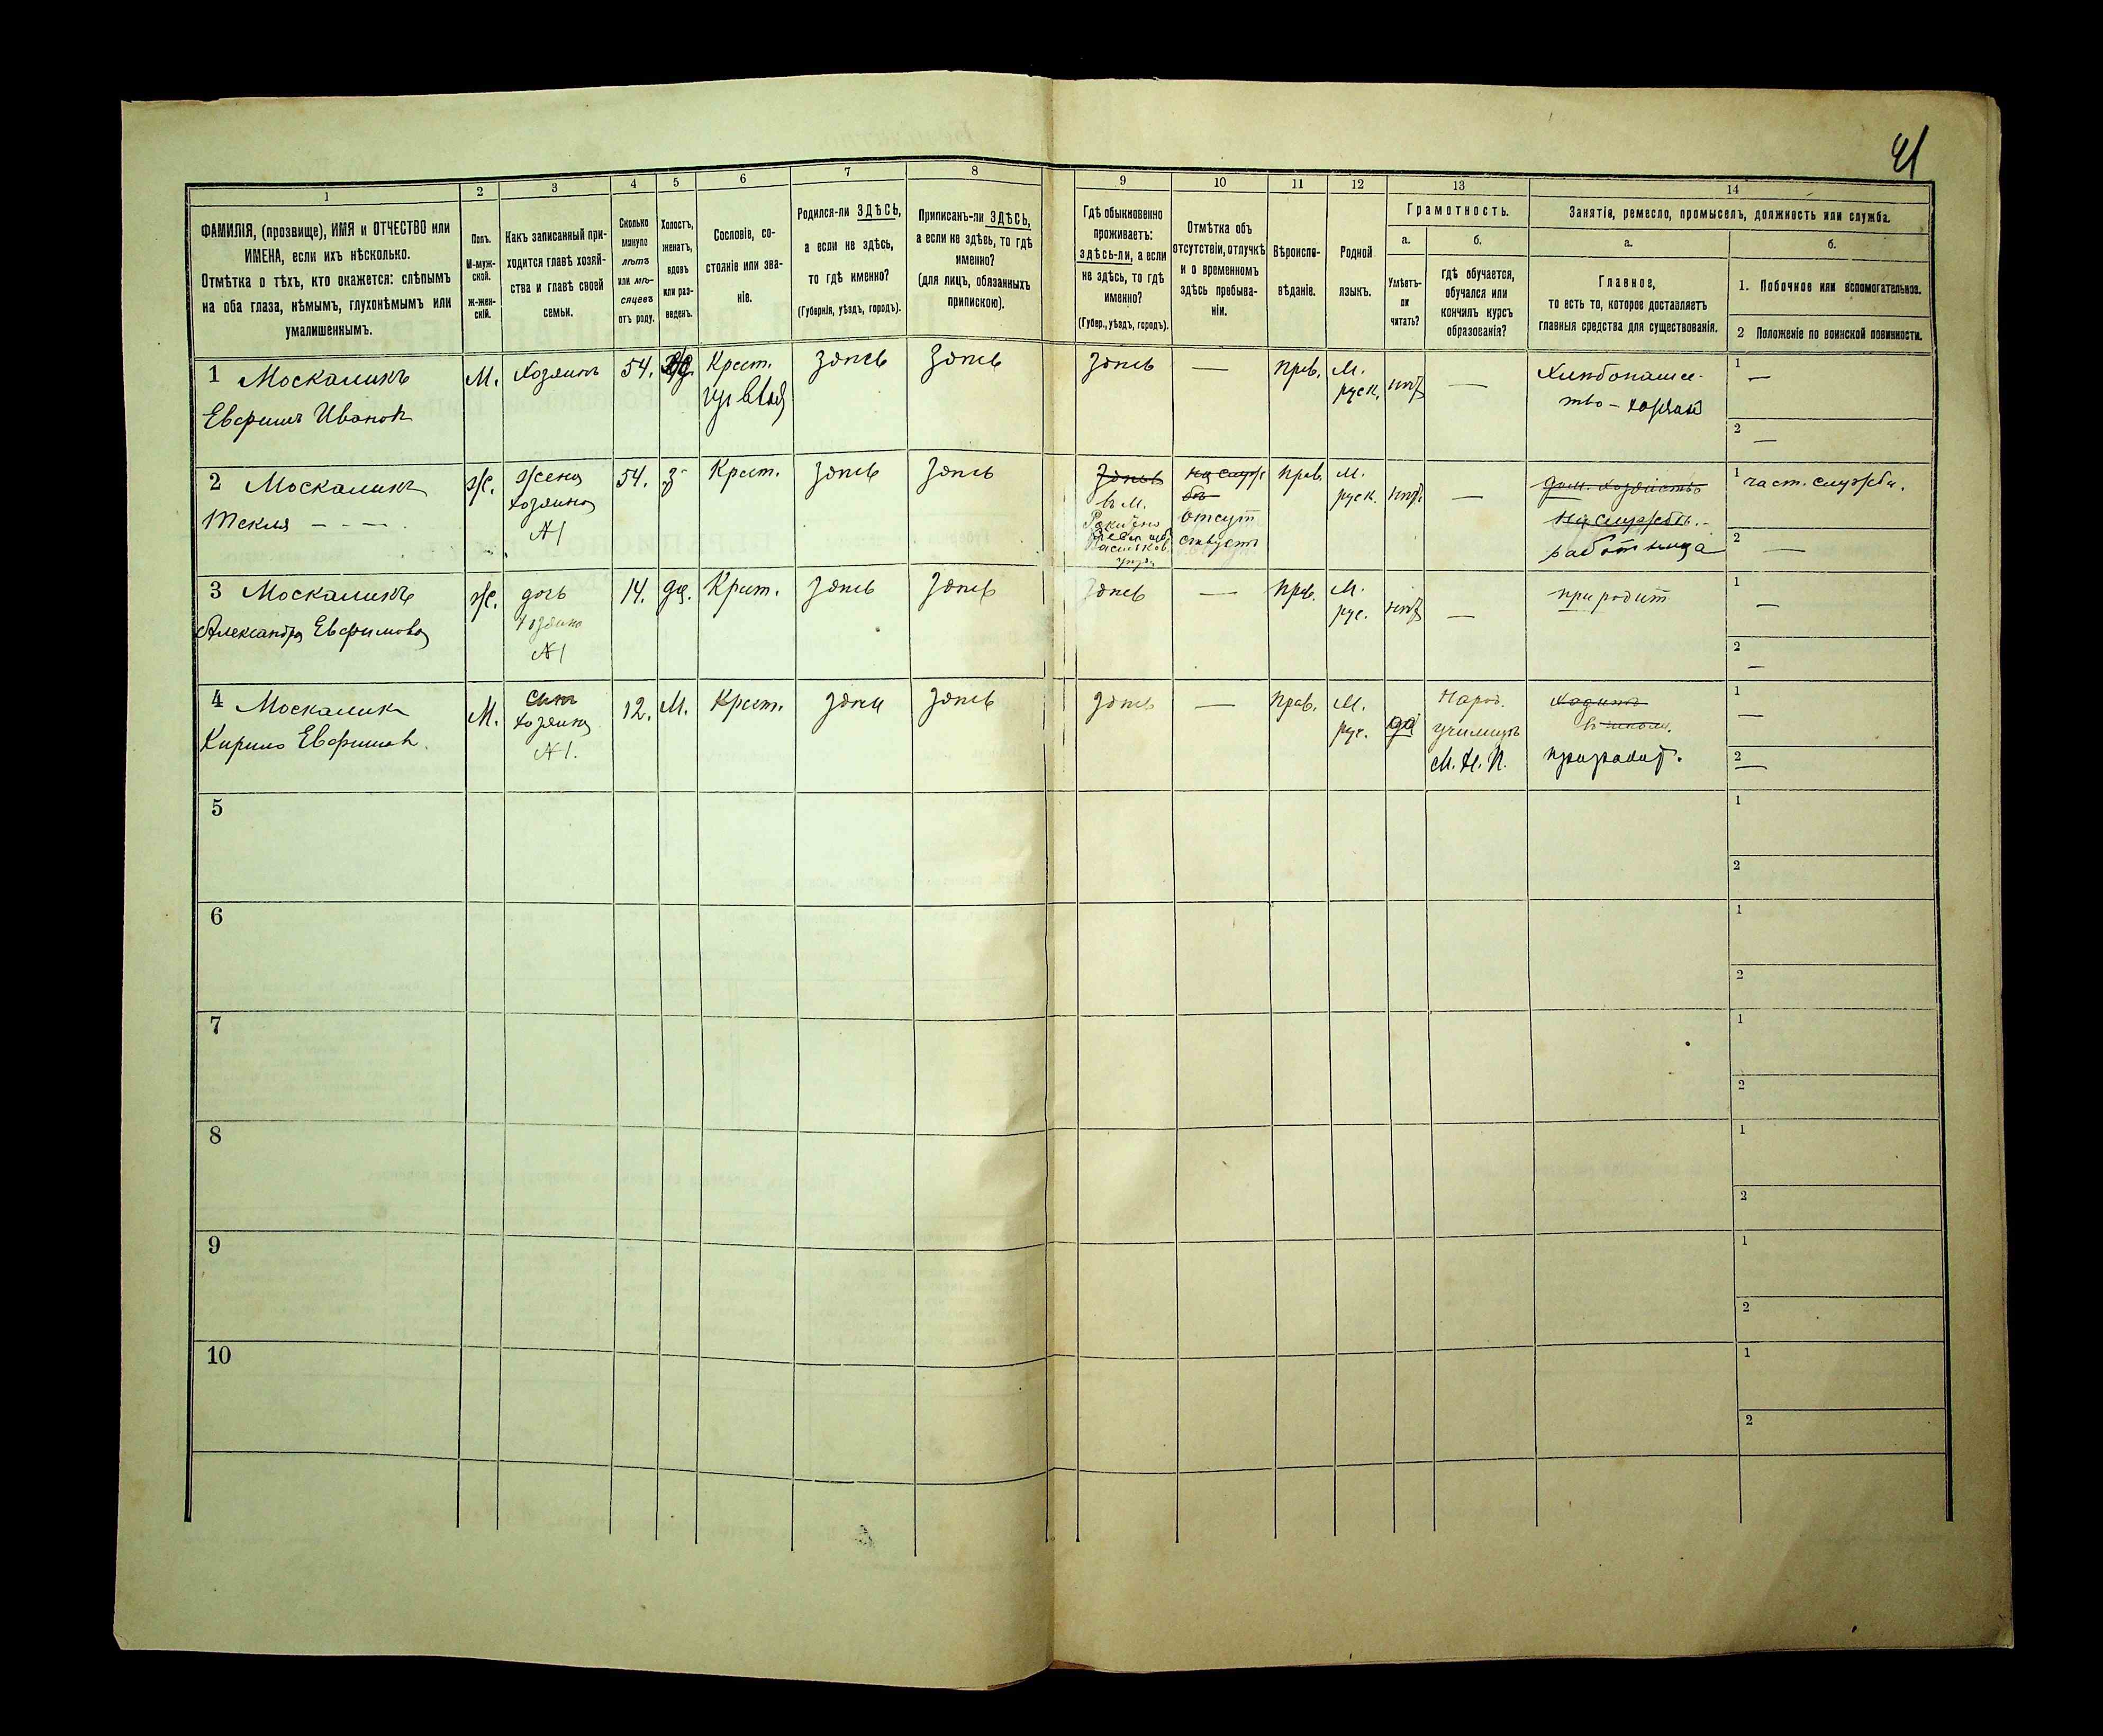 41
1 2 3 4 5 6 7 8 9 10 11 12 13 14
ФАМИЛІЯ, (прозвище), ИМЯ и ОТЧЕСТВО или
ИМЕНА, если ихъ нѣсколько.
Отмѣтка о тѣхъ, кто окажется: слѣпымъ
на оба глаза, нѣмымъ, глухонѣмымъ или
умалишеннымъ.
Полъ.
М-муж-
ской.
Ж-жен-
скій.
Какъ записанный при-
ходится главѣ хозяй-
ства и главѣ своей
семьи.
Сколько
минуло
лѣтъ
или мѣ-
сяцевъ
отъ роду.
Холостъ,
женатъ,
вдовъ
или раз-
веденъ.
Сословіе, со-
стояніе или зва-
ніе.
Родился-ли ЗДѢСЬ,
а если не здѣсь,
то гдѣ именно?
(Губернія, уѣздъ, городъ).
Приписанъ-ли ЗДѢСЬ,
а если не здѣсь, то гдѣ
именно?
(для лицъ, обязанныхъ
припискою).
Гдѣ обыкновенно
проживаетъ:
здѣсь-ли, а если
не здѣсь, то гдѣ
именно?
(Губер., уѣздъ, городъ).
Отмѣтка объ
отсутствіи, отлучкѣ
и о временномъ
здѣсь пребыва-
ніи.
Вѣроиспо-
вѣданіе.
Родной
языкъ.
Грамотность.
а.
Умѣетъ-
ли
читать?
б.
гдѣ обучается,
обучался или
кончилъ курсъ
образованія?
Занятіе, ремесло, промыселъ, должность или служба.
а.
Главное,
то есть то, которое доставляетъ
главныя средства для существованія.
б.
1. Побочное или вспомогательное.
2 Положеніе по воинской повинности.
1 Москаликъ
Евфимъ Иванов
М.
Хозяинъ
54.
Крест.
здѣсь
здѣсь
здѣсь
—
прав.
М.
руск.
нѣт
—
Хлѣбопашес-
тво - хозяин
1 —
2 —
2 Москаликъ
Текля — - —.
ж.
жена
хозяина
№1
54.
з
Крест.
здѣсь
здѣсь
здѣсь
въ м.
на служ
бѣ
отсут
ствуетъ
прав.
М.
руск.
нѣт
—
дом. хозяйство
на службѣ.-
работница
1 част. служба.
2 —
3 Москаликъ
Александра Евфимова
ж.
дочь
хозяина
№1
14.
дѣ.
Крест.
здѣсь
здѣсь
здѣсь
—
прав.
М.
рус.
нѣт
—
при родит.
1 —
2 —
4 Москалик
Кирило Евфимов.
М.
сынъ
хозяина
№1.
12.
М.
Крест.
здѣсь
здѣсь
здѣсь
—
прав.
М.
рус.
да
Народ.
училищѣ
М. Н. П.
ходитъ
въ школу.
при родит.
1 —
2 —
5 1
2
6 1
2
7 1
2
8 1
2
9 1
2
10 1
2